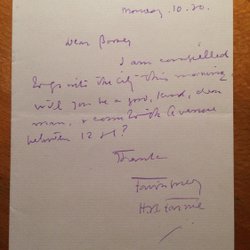 Monday. 10.20.
Dear Barney
I am compelled
to go into the city this morning
will you be a good, kind, dear
man, & come to Avenue
between 12 &1?
Thanks